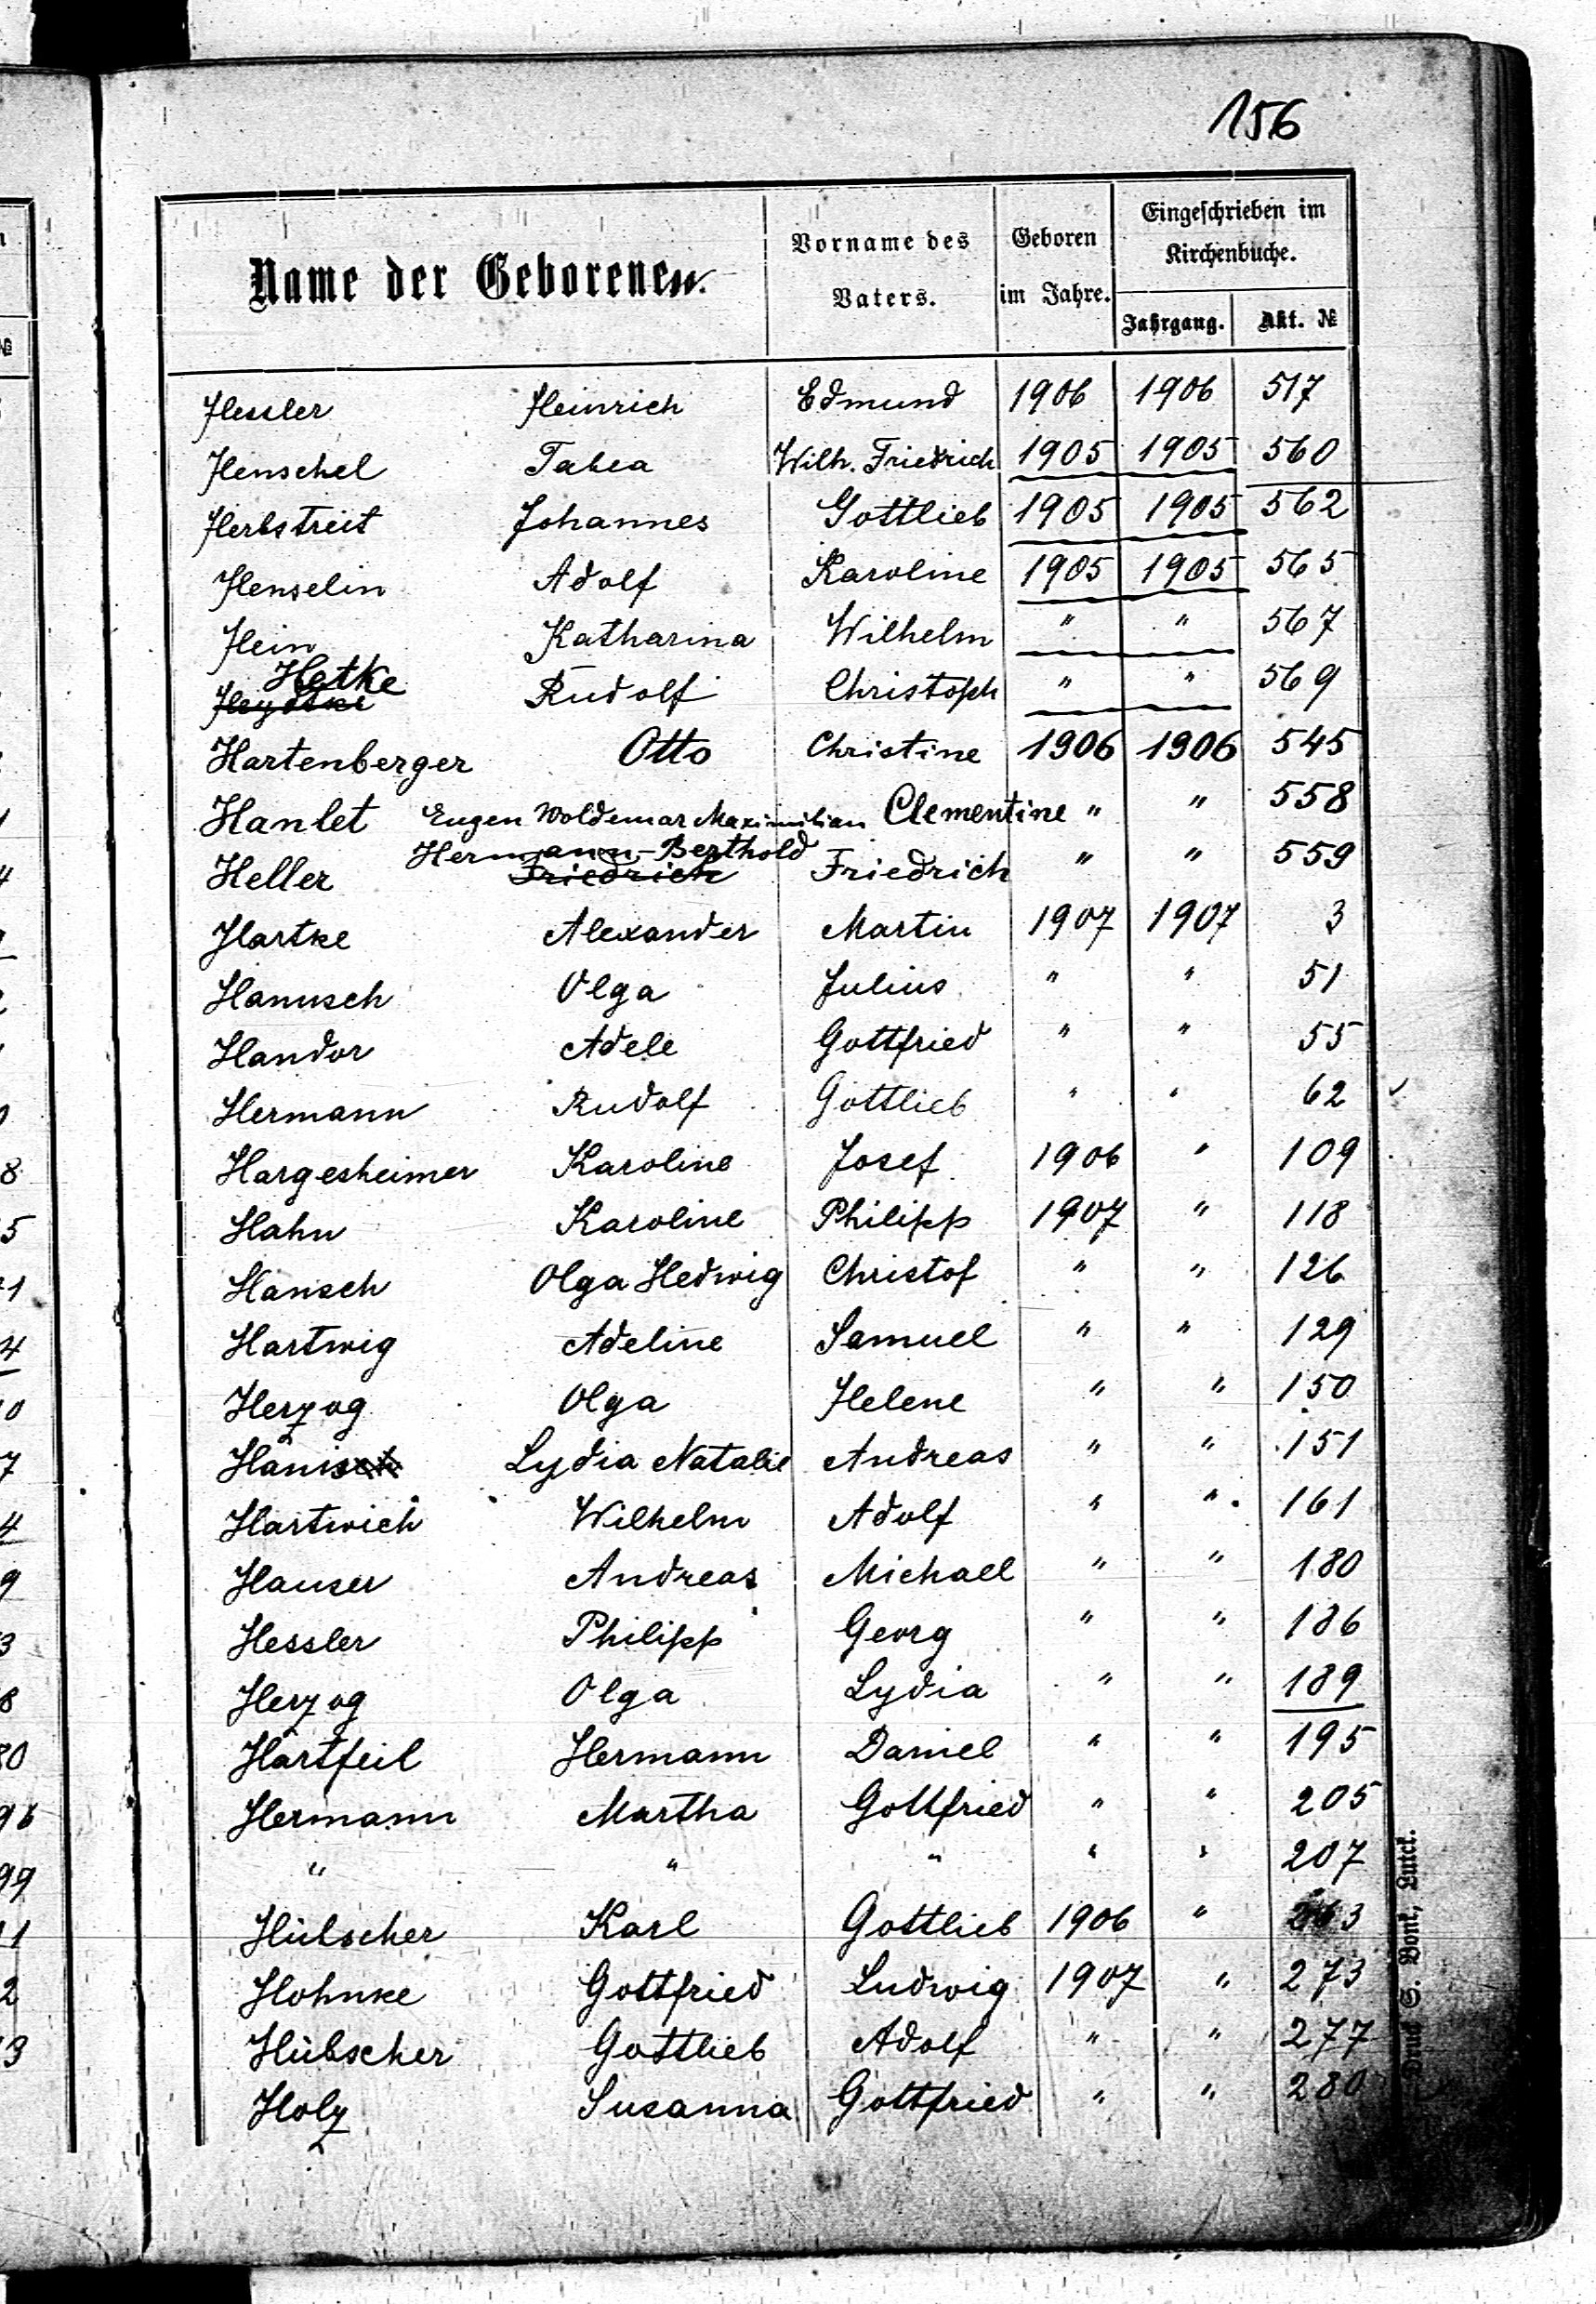 156
Name der Geborenen.
Vorname des
Vaters.
Geboren
im Jahre.
Eingeschrieben im
Kirchenbuche.
Jahrgang.
Akt. №
№
Hessler Heinrich Edmund 1906 1906 517
Henschel Tabea Wilh. Friedrich 1905 1905 560
Herbstreit Johannes Gottlieb 1905 1905 562
Henselin Adolf Karoline 1905 1905 565
Hein Katharina Wilhelm " " 567
Hetke
Rudolf Christoph " " 569
Hartenberger Otto Christine 1906 1906 545
Hanlet Eugen Woldemar Maximilian Clementine " " 558
Hermann-Berthold
Heller Friedrich Friedrich " " 559
Hartke Alexander Martin 1907 1907 3
Hanusch Olga Julius " " 51
Handor Adele Gottfried " " 55
Hermann Rudolf Gottlieb " " 62
Hargesheimer Karoline Josef 1906 " 109
Hahn Karoline Philipp 1907 " 118
Hansch Olga Hedwig Christof " " 126
Hartwig Adeline Samuel " " 129
Herzog Olga Helene " " 150
Lydia Natalie Andreas " " 151
Hartwich Wilhelm Adolf " " 161
Hauser Andreas Michael " " 180
Hessler Philipp Georg " " 186
Herzog Olga Lydia " " 189
Hartfeil Hermann Daniel " " 195
Hermann Martha Gottfried " " 205
" " " " " 207
Hübscher Karl Gottlieb 1906 "
Hohnke Gottfried Ludwig 1907 " 273
Hübscher Gottlieb Adolf " " 277
Holz Susanna Gottfried " " 280